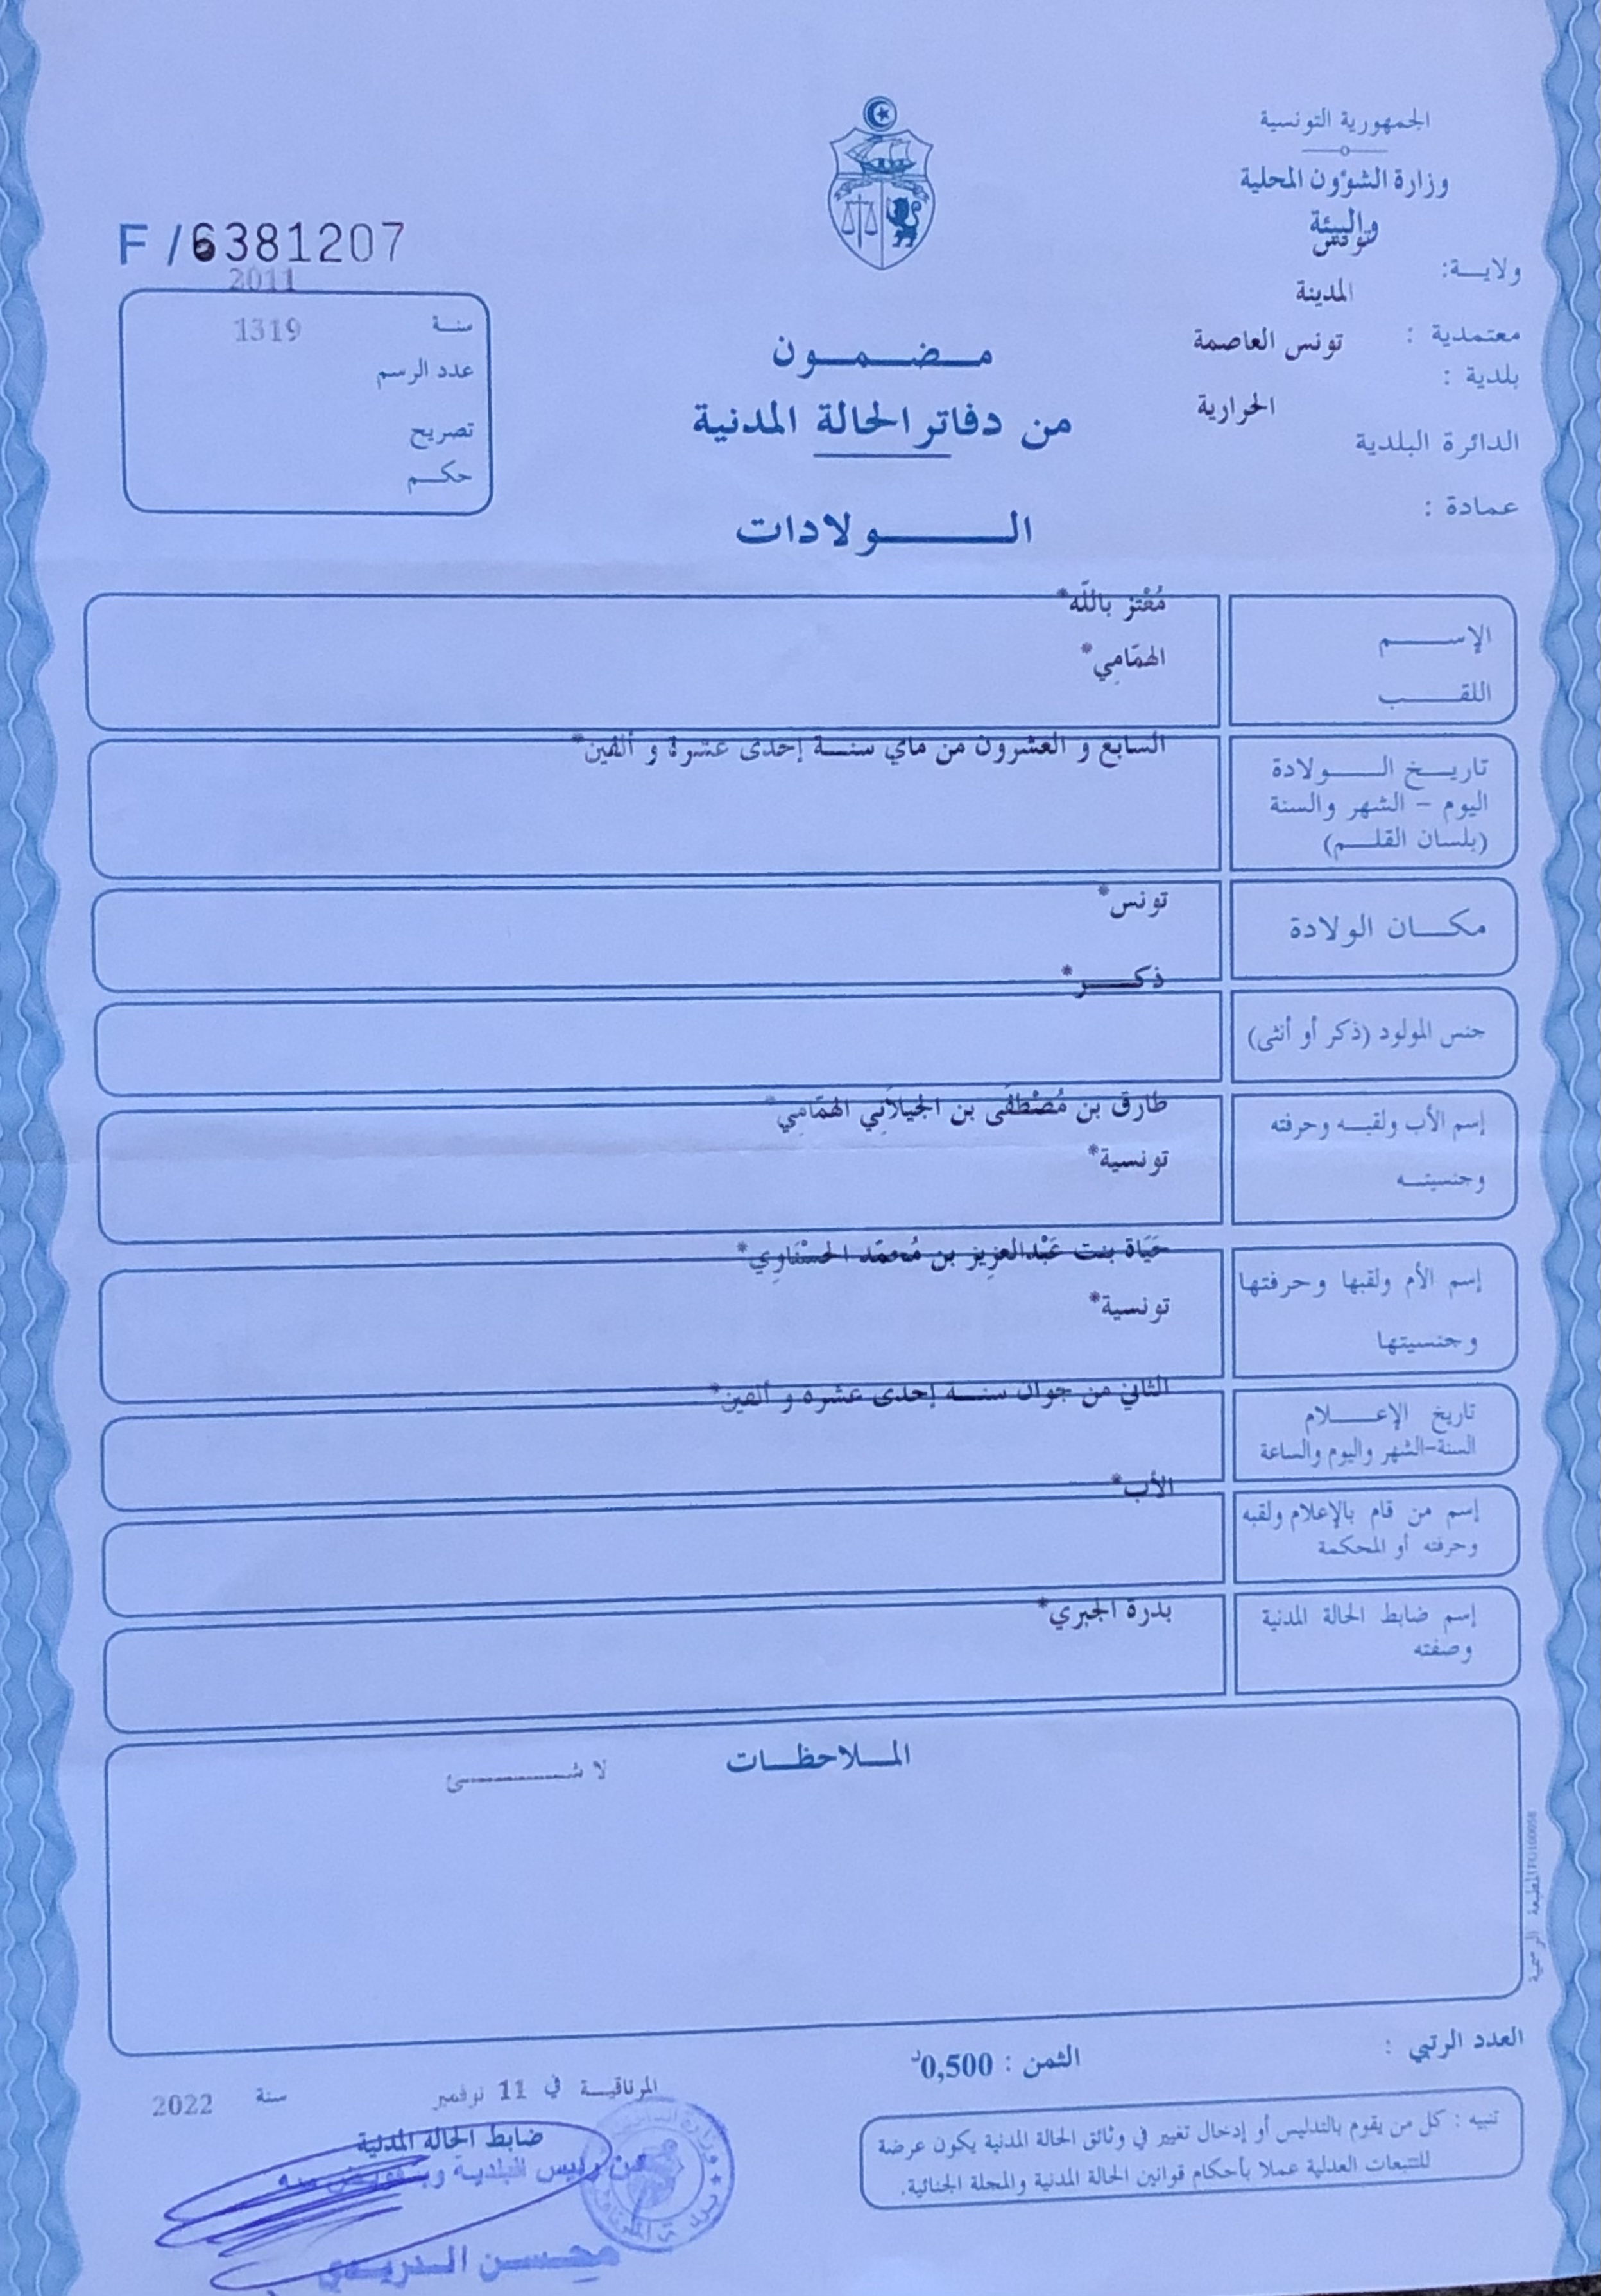 الجمهورية التونسية
وزارة الشؤون المحلية
والبيئة
ولايـــة: تونس
معتمدية : المدينة
بلدية : تونس العاصمة
الدائرة البلدية الحرارية
عمادة :
F / 6381207
سنة 2011
عدد الرسم 1319
تصريح
حكم
مـضـمـون
من دفاتر الحالة المدنية
الـولادات
الإســـم مُعْتز باللّه*
اللقـــب الهمّامِي*
تاريـخ الـولادة السابع و العشرون من ماي سنـة إحدى عشرة و ألفين*
اليوم - الشهر والسنة
(بلسان القلـم)
مكـان الولادة تونس*
جنس المولود (ذكر أو أنثى) ذكـر*
إسم الأب ولقبـه وحرفته طارق بن مُصْطفَى بن الجيلاَنِي الهمّامِي*
وجنسيتـه تونسية*
إسم الأم ولقبها وحرفتها حَيَاة بنت عَبْدالعزِيز بن مُحمّد الحسْنَاوِي*
وجنسيتها تونسية*
تاريخ الإعـلام الثاني من جوان سنـة إحدى عشرة و ألفين*
السنة-الشهر واليوم والساعة
إسم من قام بالإعلام ولقبه الأب*
وحرفته أو المحكمة
إسم ضابط الحالة المدنية بدرة الجبري*
وصفته
المـلاحظـات
لا شـــئ
المطبعة الرسمية
العدد الرتبي :
الثمن : 0,500د
المرناقيـة في 11 نوفمبر سنة 2022
ضابط الحالة المدنية
عن رئيس البلدية وبتفويض منه
محسن الدريدي
تنبيه : كل من يقوم بالتدليس أو إدخال تغيير في وثائق الحالة المدنية يكون عرضة
للتتبعات العدلية عملا بأحكام قوانين الحالة المدنية والمجلة الجنائية.